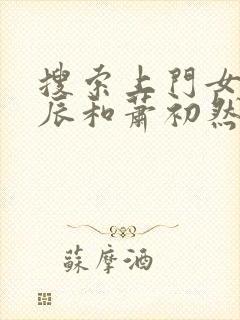 搜索上門女
辰和蕭初然
蘇摩酒